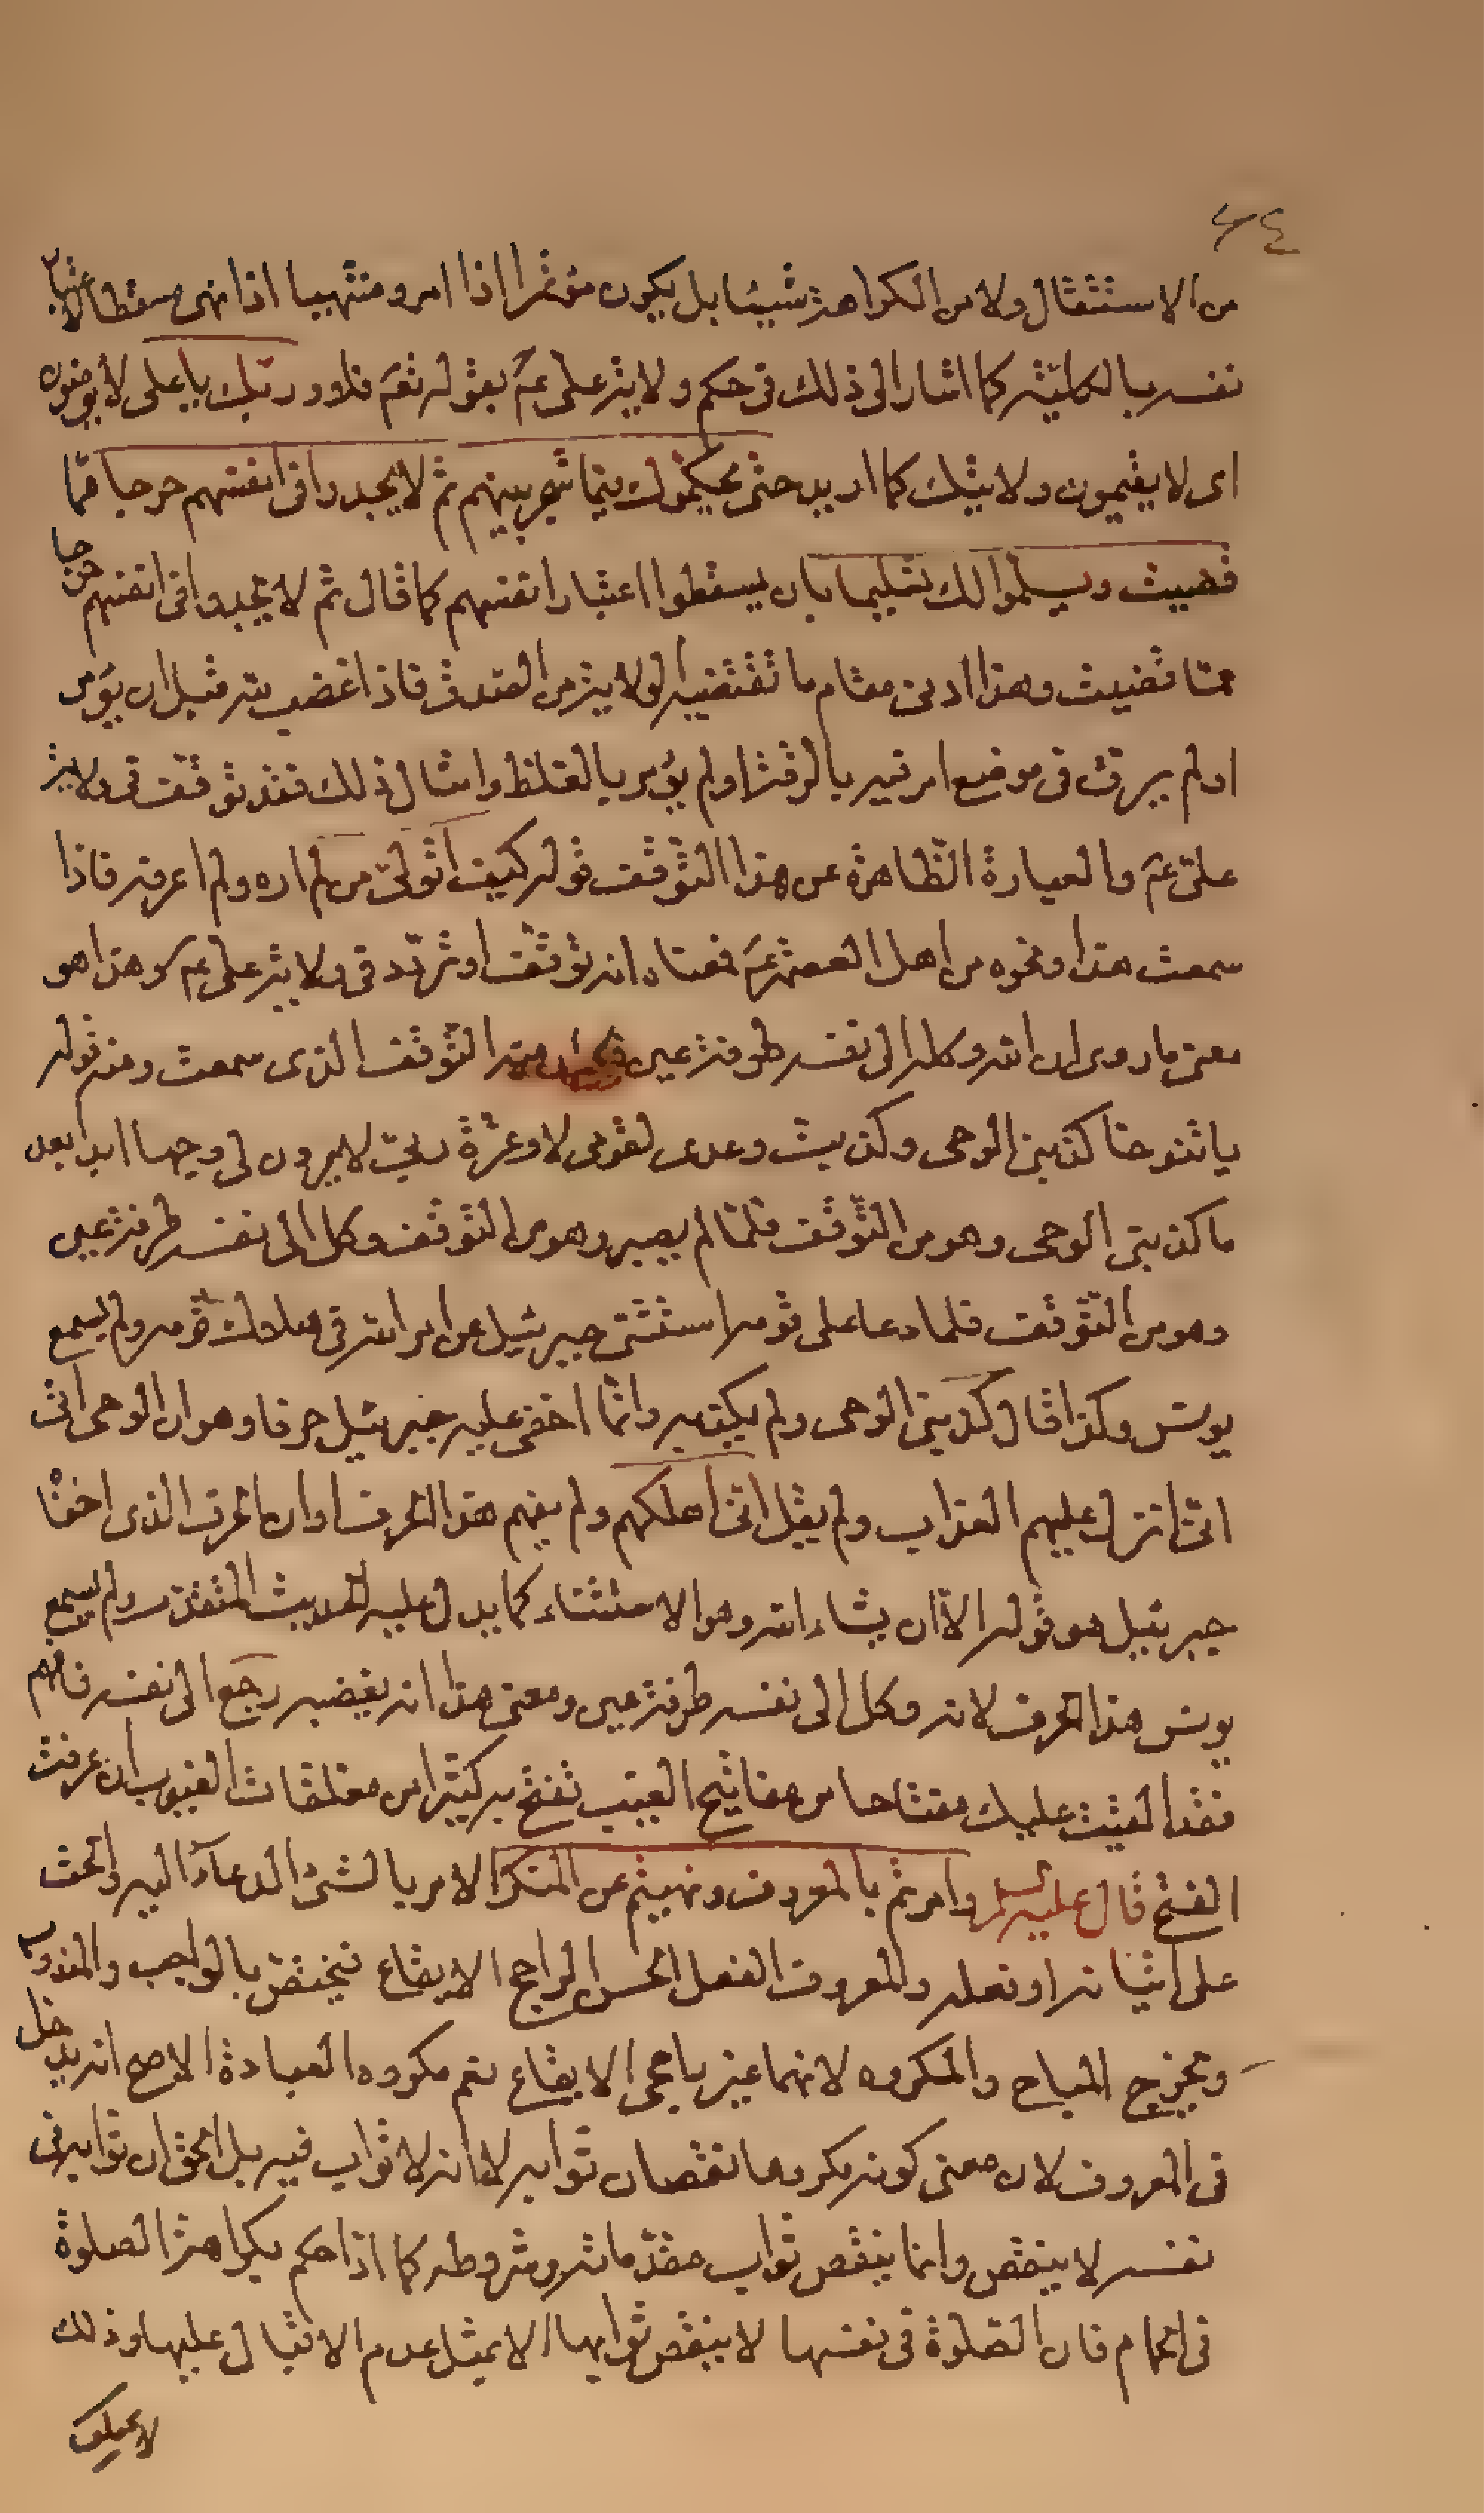 ٦٤
من الاستثقال ولا من الكراهة شيئا بل يكون مؤتمرا اذا امر ومنتهيا اذا نهى مسقطا لاعتبار
نفسه بالكلية كما اشار الى ذلك فى حكم ولاية على عم بقوله تعم فلا وربك يا على لا يؤمنون
اى لا يقيمون ولايتك كما اريد حتى يحكموك فيما شجر بينهم ثم لا يجدوا فى انفسهم حرجا مما
قضيت ويسلموا لك تسليما بان يسقطوا اعتبار انفسهم كما قال ثم لا يجدوا فى انفسهم حرجا
مما قضيت وهذا ادنى مقام ما تقتضيه الولاية من الصدق فاذا غضب لله قبل ان يؤمر
او لم يرق فى موضع امر فيه بالرقة او لم يؤمر بالغلظ وامثال ذلك فقد توقف فى ولاية
على عم والعبارة الظاهرة عن هذا التوقف قوله كيف اتولى من لم اره ولم اعرفه فاذا
سمعت هذا ونحوه من اهل العصمة عم فمعناه انه توقف او تردد فى ولاية على عم وهذا هو
معنى ما روى ان الله وكله الى نفسه طرفة عين فكان منه التوقف الذى سمعت ومنه قوله
يا تنوخا كذبنى الوحى وكذبت وعدى لقومى لا وعزة ربى لا يرون لى وجها ابدا بعد
ما كذبنى الوحى وهو من التوقف فلما لم يصبر وهو من التوقف وكل الى نفسه طرفة عين
وهو من التوقف فلما دعا على قومه استثنى جبرئيل عن امر الله فى هلاك قومه ولم يسمع
يونس وكذا قال كذبنى الوحى ولم يكذبه وانما اخفى عليه جبرئيل حرفا وهو ان الوحى اتى
انى انزل عليهم العذاب ولم يقل انى اهلكهم ولم يفهم هذا الحرف او ان الحرف الذى اخفاه
جبرئيل هو قوله الا ان يشاء الله وهو الاستثناء كما يدل عليه الحديث المتقدم ولم يسمع
يونس هذا الحرف لانه وكل الى نفسه طرفة عين ومعنى هذا انه بغضبه رجع الى نفسه فافهم
فقد القيت عليك مفتاحا من مفاتيح الغيب تفتح به كثيرا من مغلقات الغيوب ان عرفت
الفتح قال عليه السلم وامرتم بالمعروف ونهيتم عن المنكر الامر بالشئ الدعاء اليه والحث
على اتيانه او فعله والمعروف الفعل الحسن الراجح الايقاع فيختص بالواجب والمندوب
ويخرج المباح والمكروه لانهما غير راجحى الايقاع نعم مكروه العبادة الاصح انه يدخل
فى المعروف لان معنى كونه مكروها نقصان ثوابه لا انه لا ثواب فيه بل الحق ان ثوابه فى
نفسه لا ينقص وانما ينقص ثواب مقدماته وشروطه كما اذا حكم بكراهة الصلوة
فى الحمام فان الصلوة فى نفسها لا ينقص ثوابها الا بمثل عدم الاقبال عليها وذلك